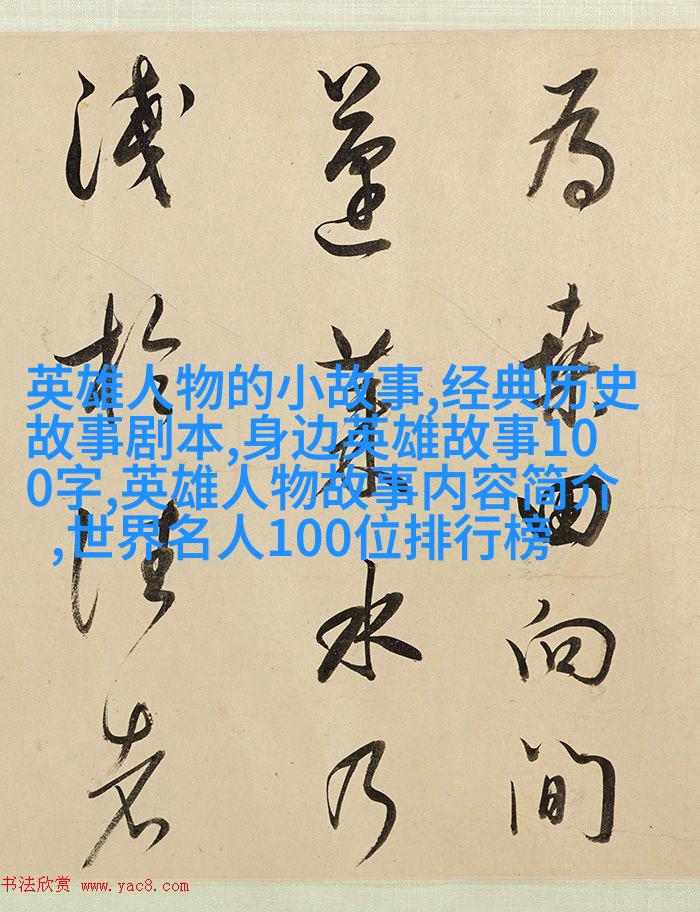 為桑田向間
蓬萊水乃
淺於往者
英雄人物的小故事,经典历史
故事剧本,身边英雄故事10
0字,英雄人物故事内容简介
,世界名人100位排行榜
书法欣赏 www.yac8.com